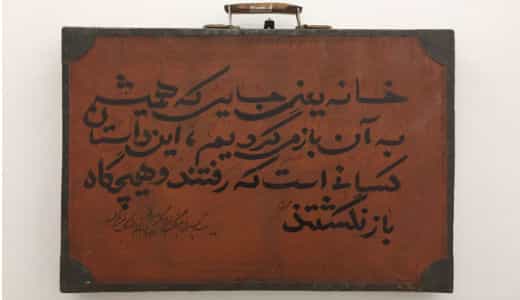 خانه یعنی جایی که همیشه
به آن باز می‌گردیم، این داستان
کسانی است که رفتند و هیچگاه
باز نگشتند